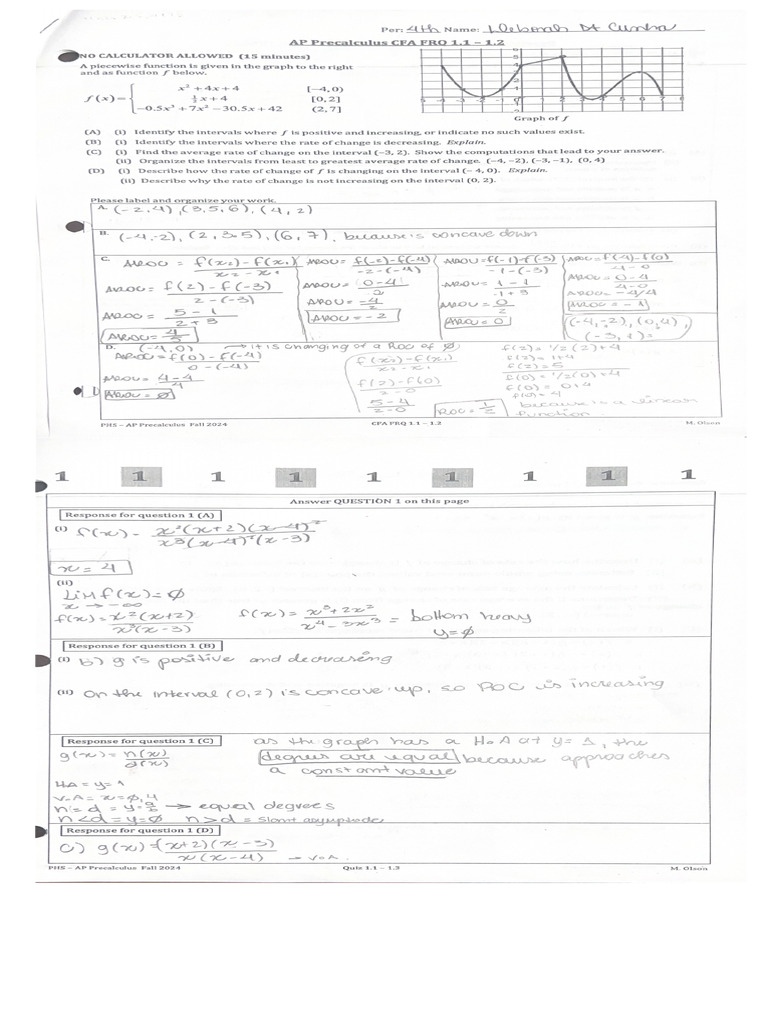 Per: 4th Name: Deborah DA Cunha
AP Precalculus CFA FRQ 1.1 – 1.2
NO CALCULATOR ALLOWED (15 minutes)
A piecewise function is given in the graph to the right
and as function f below.
f(x) = { x² + 4x + 4 [−4, 0)
½x + 4 [0, 2]
−0.5x³ + 7x² − 30.5x + 42 (2, 7]
Graph of f
(A) (i) Identify the intervals where f is positive and increasing, or indicate no such values exist.
(B) (i) Identify the intervals where the rate of change is decreasing. Explain.
(C) (i) Find the average rate of change on the interval (−3, 2). Show the computations that lead to your answer.
(ii) Organize the intervals from least to greatest average rate of change. (−4, −2), (−3, −1), (0, 4)
(D) (i) Describe how the rate of change of f is changing on the interval (− 4, 0). Explain.
(ii) Describe why the rate of change is not increasing on the interval (0, 2).
Please label and organize your work.
A. (-2,4), (3,5,6), (4,2)
B. (-4,-2), (2,3.5), (6,7), because is concave down
C. AROC = f(x₂) - f(x₁) / x₂ - x₁
AROC = f(2) - f(-3) / 2 - (-3)
AROC = 5 - 1 / 2 + 3
AROC = 4/5
AROC = f(-2) - f(-4) / -2 - (-4)
AROC = 0 - 4 / 2
AROC = -4/2
AROC = -2
AROC = f(-1) - f(-3) / -1 - (-3)
AROC = 1 - 1 / -1 + 3
AROC = 0/2
AROC = 0
AROC = f(4) - f(0) / 4 - 0
AROC = 0 - 4 / 4 - 0
AROC = -4/4
AROC = -1
(-4,-2), (0,4),
(-3,-1)
D. (-4,0) → it is changing at a ROC of ∅
AROC = f(0) - f(-4) / 0 - (-4)
AROC = 4 - 4 / 4
AROC = ∅
f(x₂) - f(x₁) / x₂ - x₁
f(2) - f(0) / 2 - 0
5 - 4 / 2 - 0
ROC = 1/2
f(2) = 1/2(2) + 4
f(2) = 1 + 4
f(2) = 5
f(0) = 1/2(0) + 4
f(0) = 0 + 4
f(0) = 4
because is a linear
function.
PHS – AP Precalculus Fall 2024 CFA FRQ 1.1 – 1.2 M. Olson
1 1 1 1 1 1 1 1 1
Answer QUESTION 1 on this page
Response for question 1 (A)
(i) f(x) = x²(x+2)(x-4)² / x³(x-4)²(x-3)
x = 4
(ii)
Lim f(x) = ∅
x → -∞
f(x) = x²(x+2) / x³(x-3) f(x) = x³ + 2x² / x⁴ - 3x³ = bottom heavy
y = ∅
Response for question 1 (B)
(i) b) g is positive and decreasing
(ii) On the interval (0,2) is concave up, so ROC is increasing
Response for question 1 (C)
as the graph has a H.A at y = 1, the
degrees are equal because approaches
a constant value
g(x) = n(x) / d(x)
HA = y = 1
V.A = x = ∅, 4
n = d = y = a/b → equal degrees
n < d = y = ∅ n > d = slant asymptode
Response for question 1 (D)
c) g(x) = (x+2)(x-3) / x(x-4) → V.A.
PHS – AP Precalculus Fall 2024 Quiz 1.1 – 1.3 M. Olson